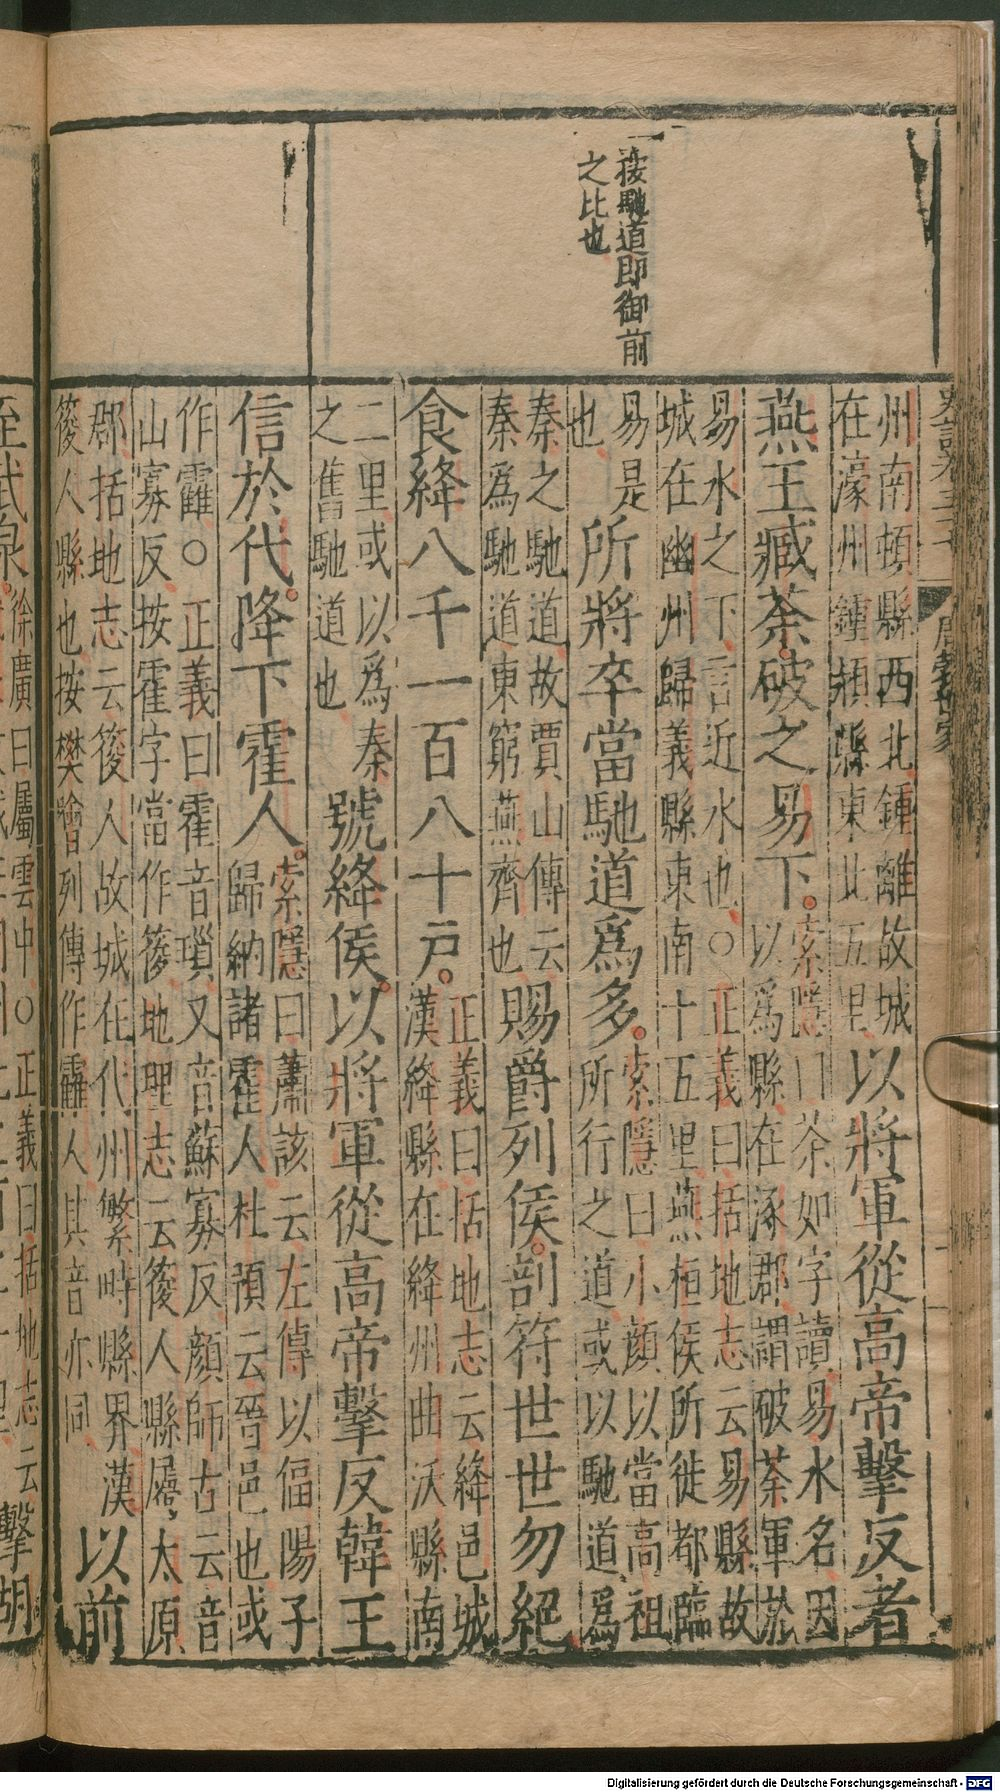 按馳道即御前
之比也
州南頓縣西北鍾離故城
在濠州鍾離縣東北五里
以將軍從高帝擊反者
燕王臧荼破之易下
索隱曰荼如字讀易水名因
以爲縣在涿郡謂破荼軍於
易水之下言近水也○正義曰括地志云易縣故
城在幽州歸義縣東南十五里燕桓侯所徙都臨
易是
也
所將卒當馳道爲多
索隱曰小顏以當高祖
所行之道或以馳道爲
秦之馳道故賈山傳云
秦爲馳道東窮燕齊也
賜爵列侯剖符世世勿絕
食絳八千一百八十戶
正義曰括地志云絳邑城
漢絳縣在絳州曲沃縣南
二里或以爲秦
之舊馳道也
號絳侯以將軍從高帝擊反韓王
信於代降下霍人
索隱曰蕭該云左傳以偪陽子
歸納諸霍人杜預云晉邑也或
作靃○正義曰霍音瑣又音蘇寡反顏師古云音
山寡反按霍字當作葰地理志云葰人縣屬太原
郡括地志云葰人故城在代州繁畤縣界漢
葰人縣也按樊噲列傳作靃人其音亦同
以前
至武泉
徐廣曰屬雲中○正義曰括地志云
擊胡
Digitalisierung gefördert durch die Deutsche Forschungsgemeinschaft - DFG